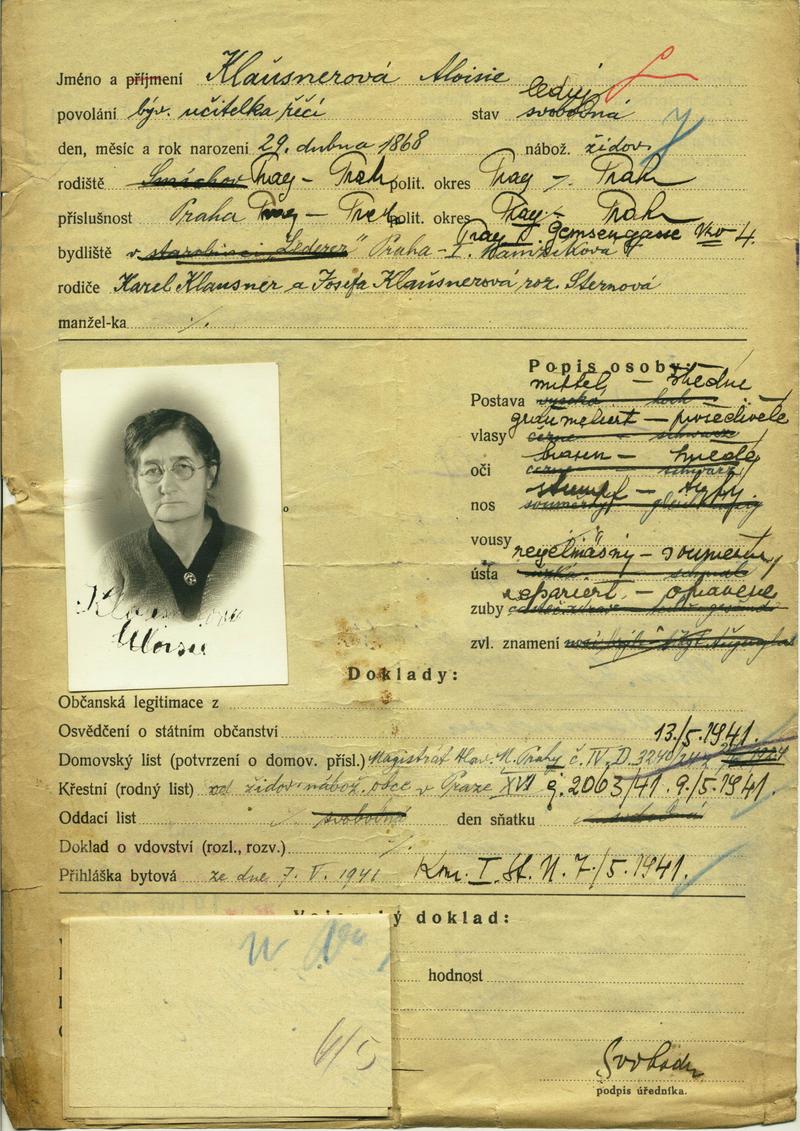 Jméno a příjmení Klausnerová Aloisie
ledig
povolání býv. učitelka řečí stav svobodná
den, měsíc a rok narození 29. dubna 1868 nábož. židov.
rodiště Smíchov Prag - polit. okres Prag - Praha
příslušnost Praha Prag - polit. okres Prag - Praha
Prag I. Gemsengasse No 4.
bydliště v starobinci „Lederer" Praha - I. Kamzíkova
rodiče Karel Klausner a Josefa Klausnerová roz. Sternová
manžel-ka ./.
Popis osoby:
mittel - středně
Postava vysoká hoch
graumeliert - prošedivělé
vlasy černé - schwarz
braun - hnědé
oči černé - schwarz
stumpf - tupý
nos
vousy
regelmäsig - souměrná
ústa
repariert - opravené
zuby
zvl. znamení
Klausnerová
Aloisie
Doklady:
Občanská legitimace z
Osvědčení o státním občanství 13./5.1941.
Domovský list (potvrzení o domov. přísl.) Magistrát Hlav. M. Prahy č. IV. D. 3240
Křestní (rodný list) od židov. nábož. obce v Praze XVI č. 2063/41. 9./5.1941.
Oddací list svobodná den sňatku
Doklad o vdovství (rozl., rozv.) ./.
Přihláška bytová ze dne 7. V. 1941 Kom. I. St. N. 7./5.1941.
doklad:
hodnost
6/5
Svoboda
podpis úředníka.